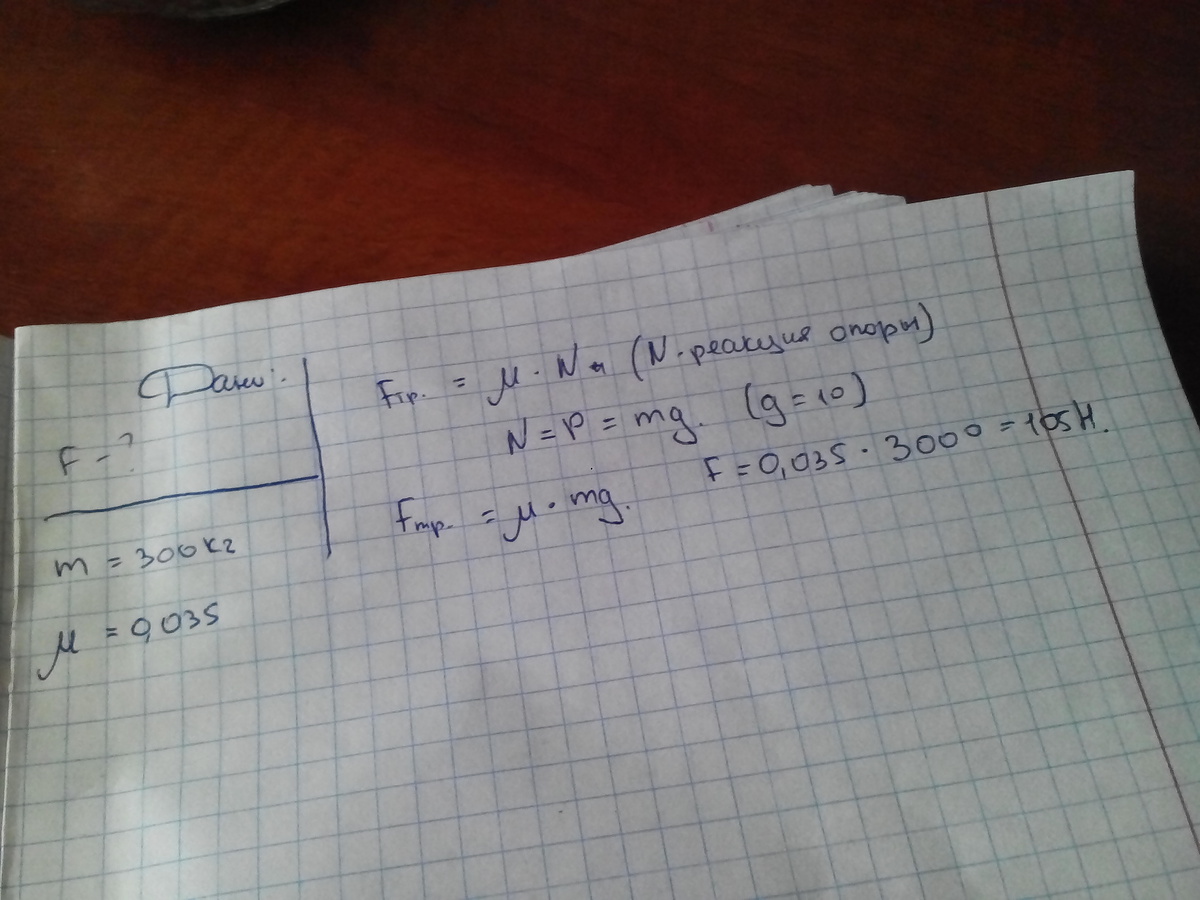 Дано:
F - ?
m = 300 кг
μ = 0,035
Fтр. = μ · N (N - реакция опоры)
N = P = mg. (g = 10)
Fтр. = μ · mg.
F = 0,035 · 3000 = 105 Н.